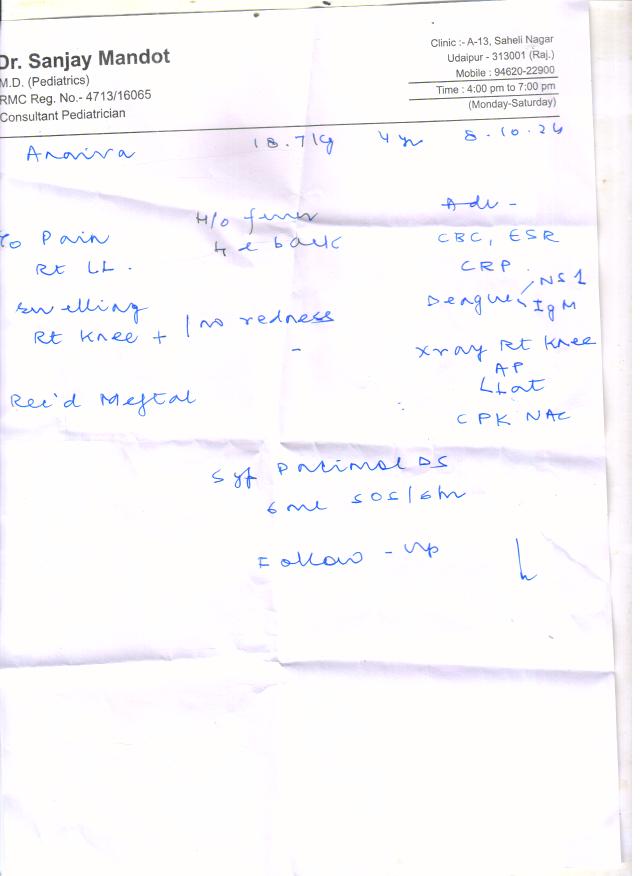 Dr. Sanjay Mandot
M.D. (Pediatrics)
RMC Reg. No.- 4713/16065
Consultant Pediatrician
Clinic :- A-13, Saheli Nagar
Udaipur - 313001 (Raj.)
Mobile : 94620-22900
Time : 4:00 pm to 7:00 pm
(Monday-Saturday)
18.7 kg 4 yr 8.10.24
c/o Pain
Rt LL.
swelling
Rt Knee + / no redness
Rec'd Meftal
H/o fever
back
Adv -
CBC, ESR
CRP
Dengue NS1
IgM
Xray Rt Knee
AP
Lat
CPK NAC
Syp DS
6 ml SOS/6hr
Follow - up